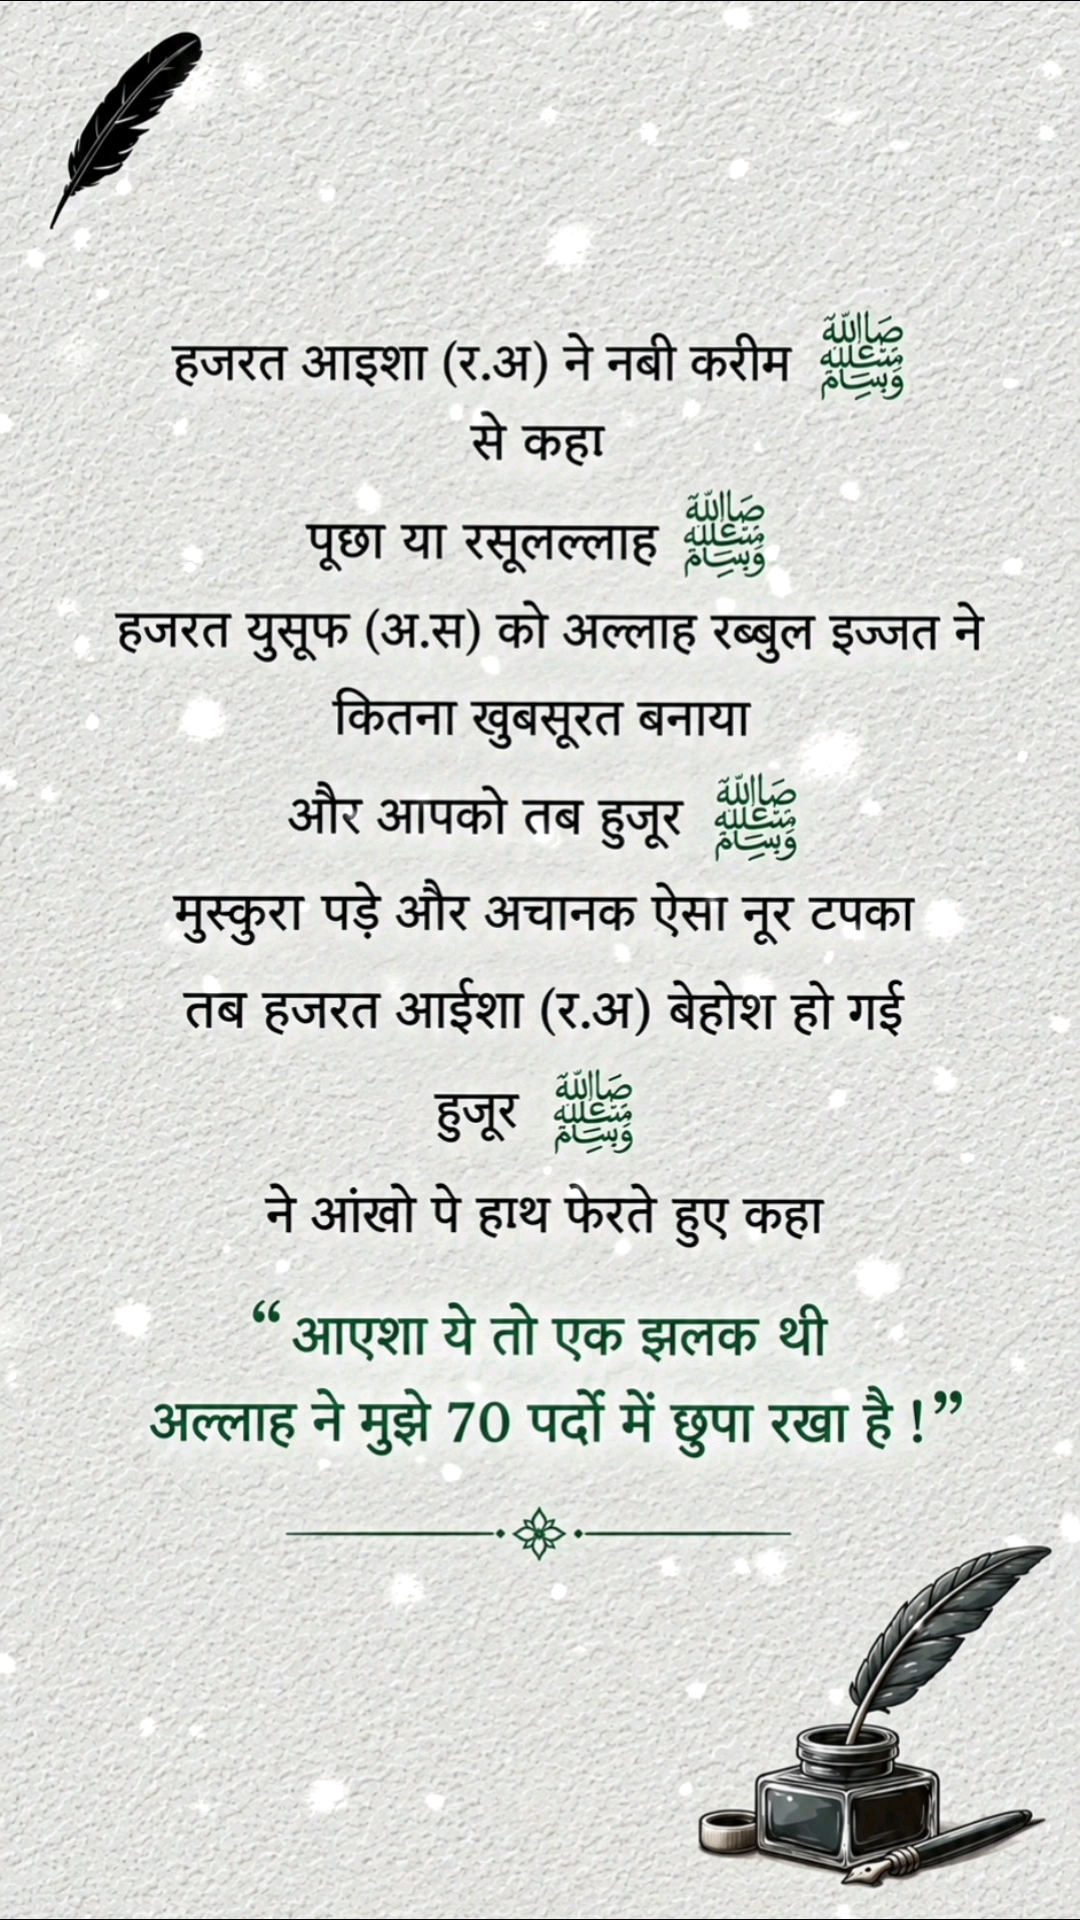 हजरत आइशा (र.अ) ने नबी करीम ﷺ
से कहा
पूछा या रसूलल्लाह ﷺ
हजरत युसूफ (अ.स) को अल्लाह रब्बुल इज्जत ने
कितना खुबसूरत बनाया
और आपको तब हुजूर ﷺ
मुस्कुरा पड़े और अचानक ऐसा नूर टपका
तब हजरत आईशा (र.अ) बेहोश हो गई
हुजूर ﷺ
ने आंखो पे हाथ फेरते हुए कहा
“ आएशा ये तो एक झलक थी
अल्लाह ने मुझे 70 पर्दो में छुपा रखा है !”